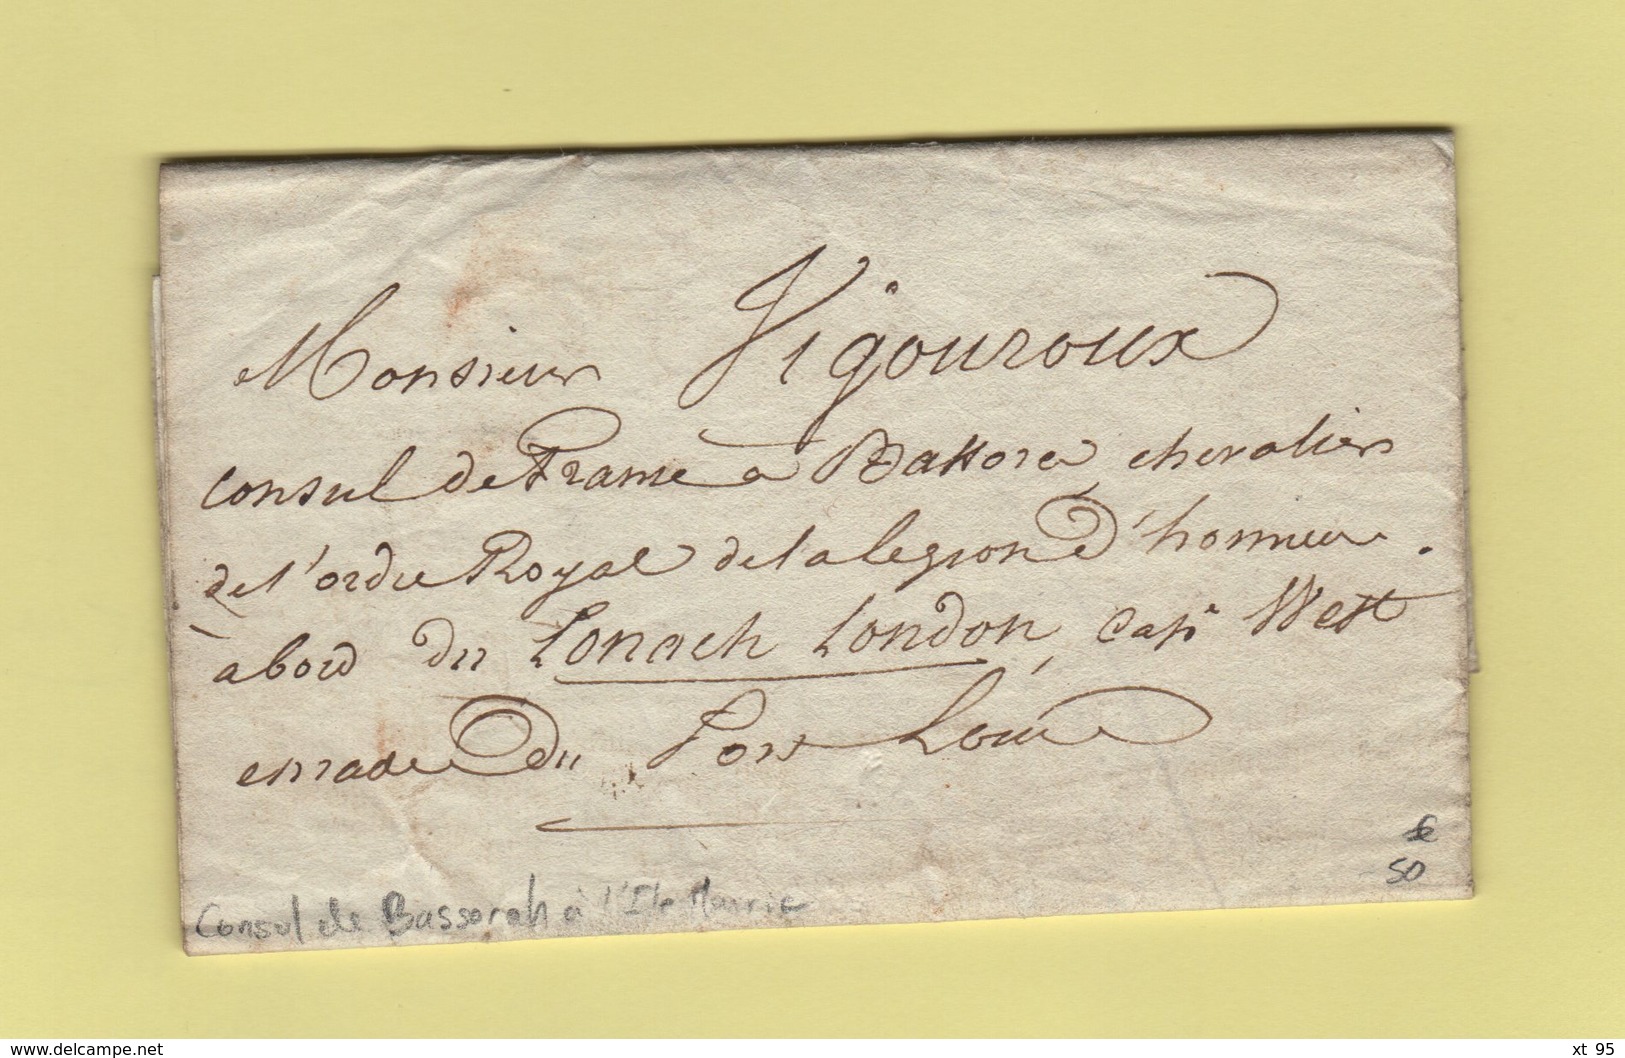 Monsieur Vigouroux
Consul de France a Bassora chevalier
de l'ordre Royal de la legion d'honneur.
a bord du Lonach London, Capⁿ West
en rade du Port Louis
€
50
Consul de Bassorah à l'Ile Maurice
www.delcampe.net
xt 95